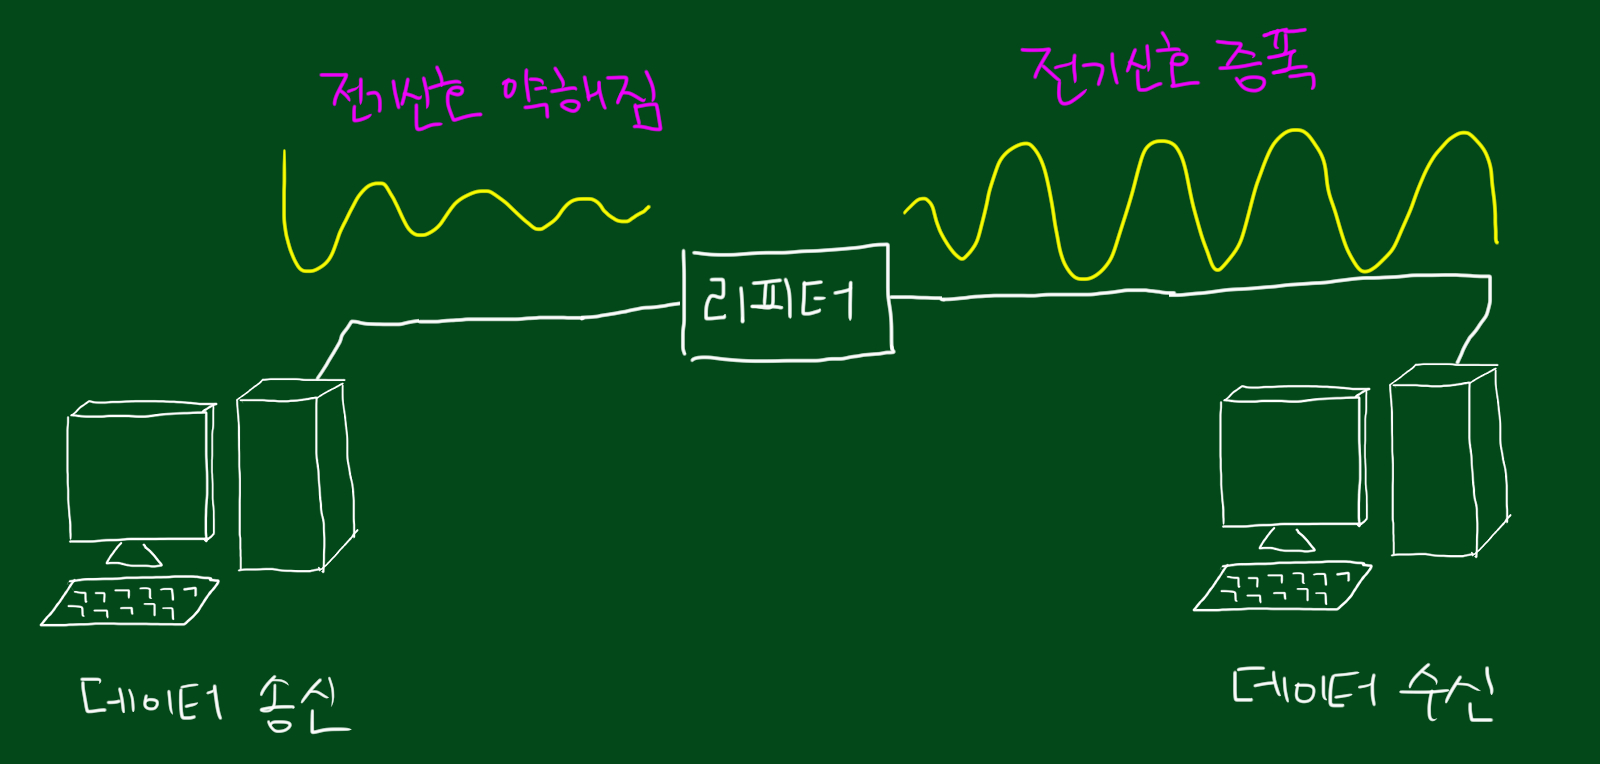 전기신호 약해짐
전기신호 증폭
리피터
데이터 송신
데이터 수신